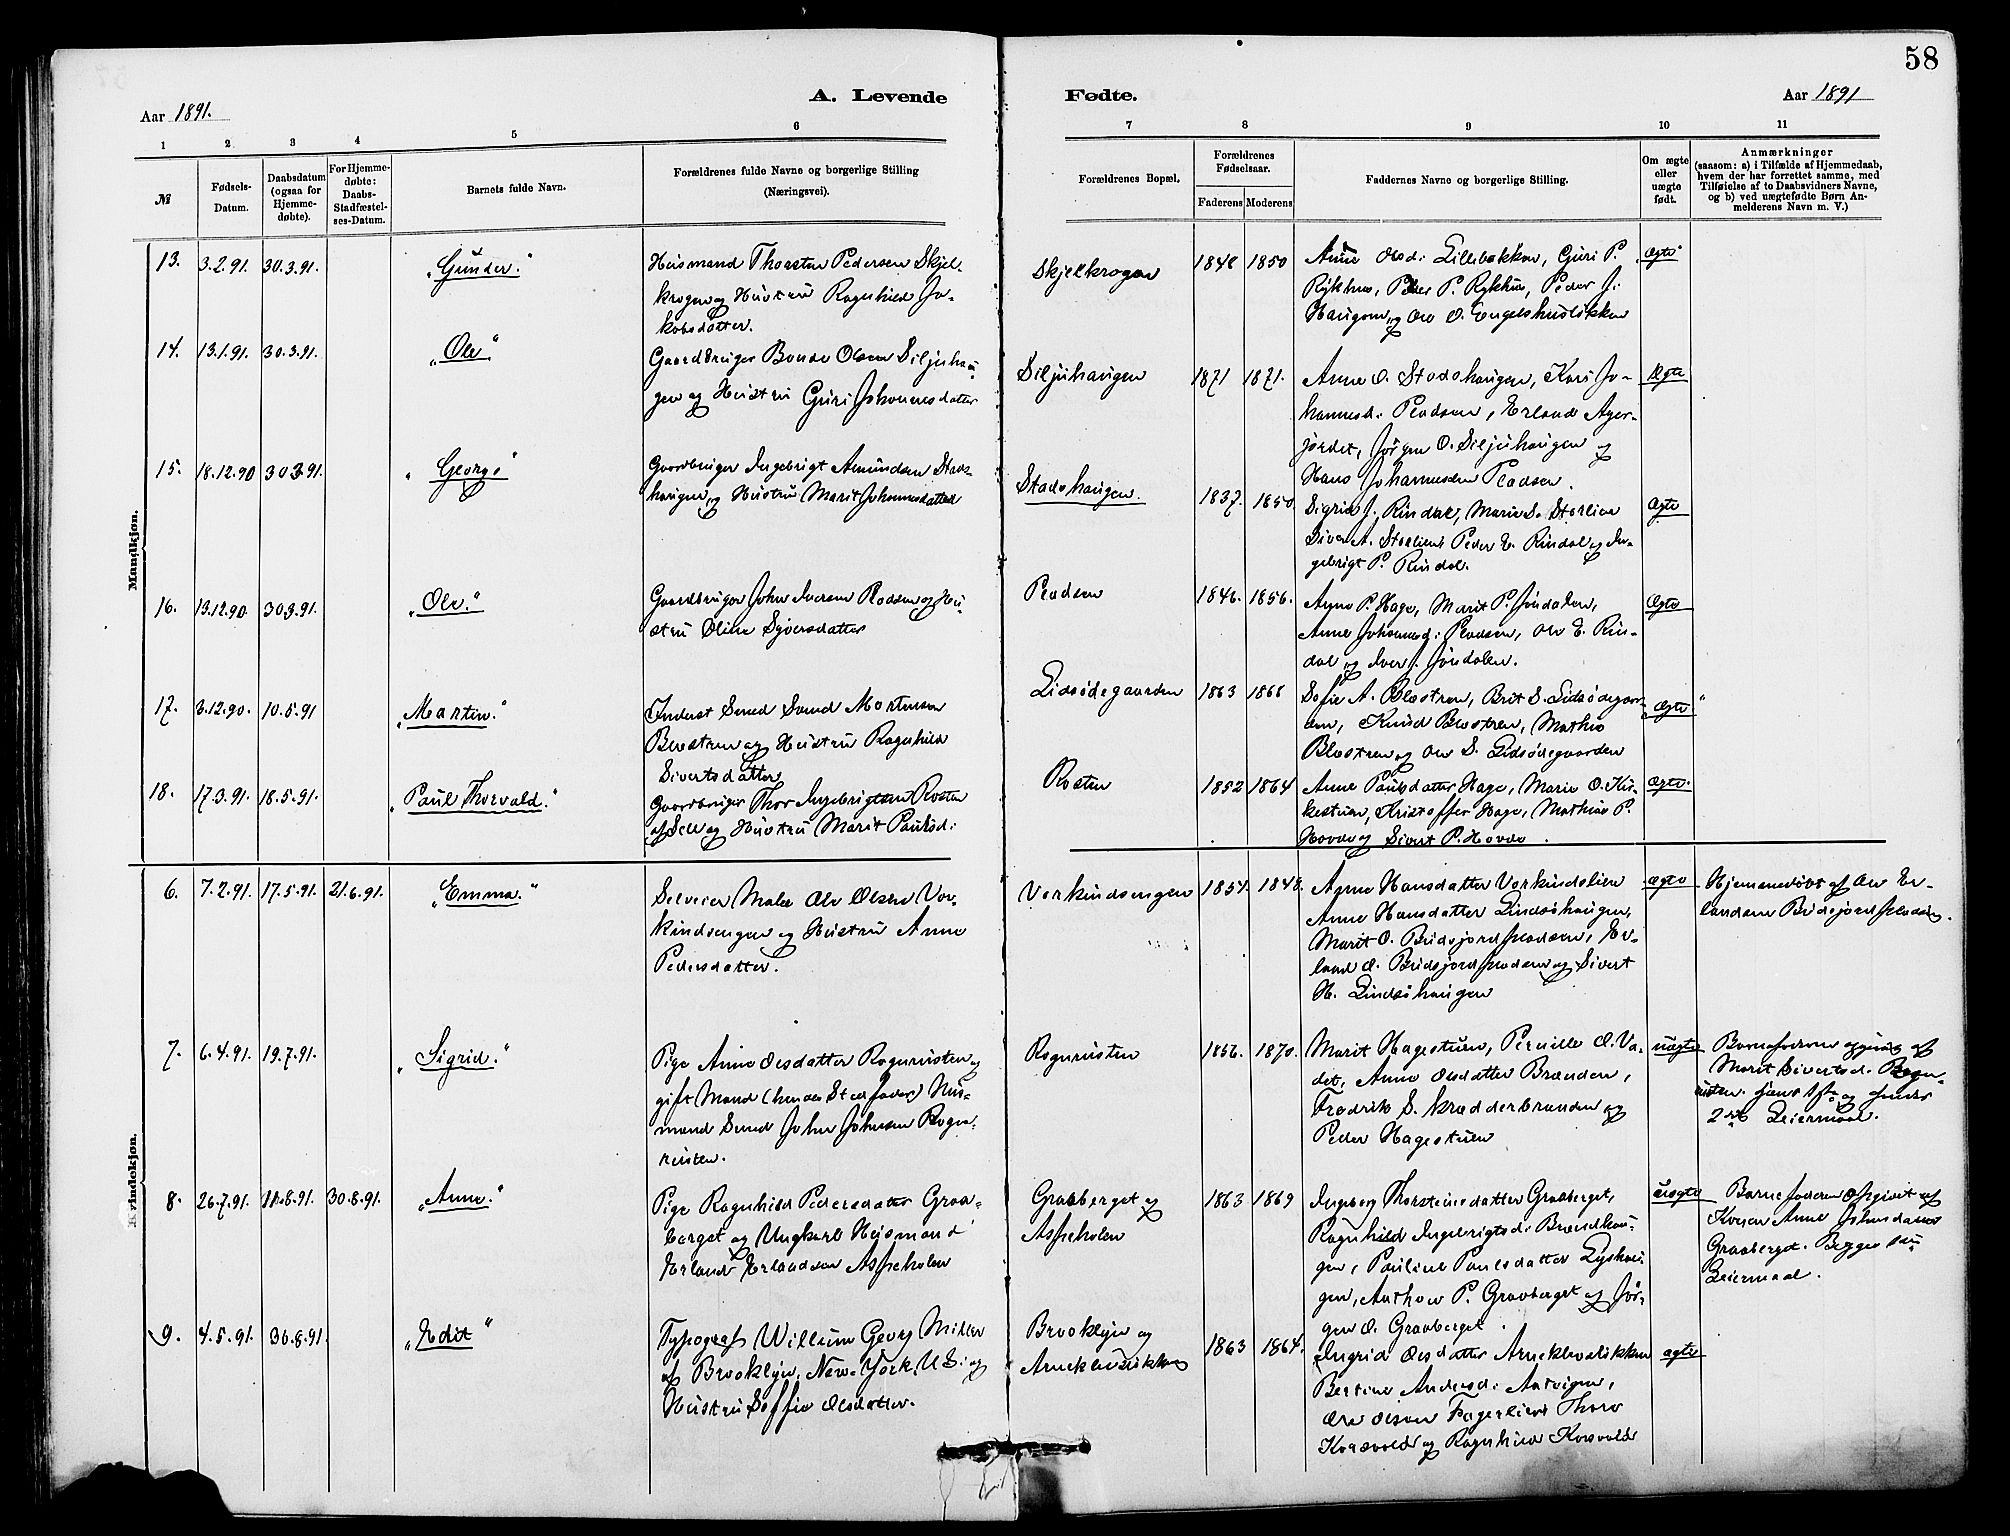 58
A. Levende Fødte.
Aar 1891.
Aar 1891
1 2. 3 4 5 6 7 8 9 10 11
№
Fødsels-
Datum.
Daabsdatum
(ogsaa for
Hjemme-
døbte).
For Hjemme-
døbte:
Daabs-
Stadfæstel-
ses-Datum.
Barnets fulde Navn.
Forældrenes fulde Navne og borgerlige Stilling
(Næringsvei).
Forældrenes Bopæl.
Forældrenes
Fødselsaar.
Faderens Moderens
Faddernes Navne og borgerlige Stilling.
Om ægte
eller
uægte
født.
Anmærkninger
(saasom: a) i Tilfælde af Hjemmedaab,
hvem der har forrettet samme, med
Tilføielse af to Daabsvidners Navne,
og b) ved uægtefødte Børn An-
melderens Navn m. V.)
Mandkjøn.
13. 3.2.91. 30.3.91. "Gunder."
Husmand Thorsten Pedersen Skjel-
krogen og Hustru Ragnhild Ja-
kobsdatter.
Skjelkrogen
1848 1850
Anne Olsd: Lillebakken, Guri P.
Rykhus, Peder P. Rykhus, Peder J.
Haugen, og Ole O. Engelshuslikken
Ægte
14. 13.1.91. 30.3.91. "Ole"
Gaardbruger Bonde Olsen Siljuhau-
gen og Hustru Guri Johannesdatter
Siljuhaugen
1871 1871.
Anne O. Stadshaugen, Kari Jo-
hannesd: Pladsen, Erland Ager-
jordet, Jørgen O. Siljuhaugen og
Hans Johannesen Pladsen.
Ægte
15. 18.12.90 30.3.91. "George"
Gaardbruger Ingebrigt Amundsen Stads-
haugen, og Hustru Marit Johannesdatter
Stadshaugen.
1837. 1850
Sigrid J. Rindal, Marie S. Storlien
Siver A. Storlien, Peder E. Rindal og In-
gebrigt P. Rindal.
Ægte
16. 13.12.90 30.3.91. "Ole."
Gaardbruger John Iversen Pladsen og Hu-
stru Oline Syversdatter
Pladsen
1846. 1856.
Anne P. Hage, Marit P. Jøndalen,
Anne Johannesd: Pladsen, Ole E. Rin-
dal og Iver J. Jøndalen.
Ægte
17. 3.12.90. 10.5.91 "Martin."
Inderst Smed Svend Mortensen
Blestren og Hustru Ragnhild
Sivertsdatter
Lidsødegaarden
1863 1866
Sofie A. Blestren, Brit S. Lidsødegaar-
den, Knud Blestren, Mathis
Blestren og Ole S. Lidsødegaarden
Ægte
18. 17.3.91. 18.5.91. "Paul Thorvald."
Gaardbruger Thor Ingebrigtsen Rosten
af Sel og Hustru Marit Paulsd:
Rosten
1852 1864
Anne Paulsdatter Hage, Marie O. Kir-
kestuen, Kristoffer Hage, Mathias P.
Hovde og Sivert P. Hovde.
Ægte.
Kvindekjøn.
6. 7.2.91. 17.5.91. 21.6.91. "Emma."
Selveier Maler Ole Olsen Vor-
kindsengen og Hustru Anne
Pedersdatter.
Vorkindsengen
1854. 1848.
Anne Hansdatter Vorkindslien
Anne Hansdatter Lindsøhaugen,
Marit O. Bridsjordpladsen, Er-
land O. Bridsjordpladsen og Sivert
H. Lindsøhaugen
ægte
Hjemmedøbt af Ole Er-
landsen Bridsjordpladsen.
7. 6.4.91. 19.7.91. "Sigrid."
Pige Anne Olsdatter Rognrusten og
gift Mand (hendes Stedfader) Hus-
mand Smed John Johnsen Rogn-
rusten.
Rognrusten
1856. 1870.
Marit Hagestuen, Pernille O. Va-
det, Anne Olsdatter Brænden,
Fredrik S. Skredderbrænden og
Peder Hagestuen
uægte
Barnefaderen opgivet af
Marit Sivertsd. Rogn-
rusten. Hans 1ste og hendes
2det Leiermaal.
8. 26.7.91. 11.8.91. 30.8.91. "Anne."
Pige Ragnhild Pedersdatter Graa-
berget og Ungkarl Husmand
Erland Erlandsen Aspeholen
Graaberget og
Aspeholen
1863 1869
Ingeborg Thorsteinsdatter Graaberget,
Ragnhild Ingebrigtsd: Brændhau-
gen, Pauline Paulsdatter Lyshau-
gen, Anthon P. Graaberget og Jør-
gen O. Graaberget.
uægte
Barnefaderen opgivet af
Konen Anne Johnsdatter
Graaberget. Begges 1ste
Leiermaal.
9. 4.5.91. 30.8.91. "Edit"
Typograf Willum Georg Miller
af Brooklyn, New-York, U.S: og
Hustru Soffie Olsdatter.
Brooklyn og
Arneklevslikken
1863 1864.
Ingrid Olsdatter Arneklevslikken
Bertine Andersd: Antvigen,
Ole Olsen Fagerlien, Thore
Korsvold og Ragnhild Korsvold
ægte